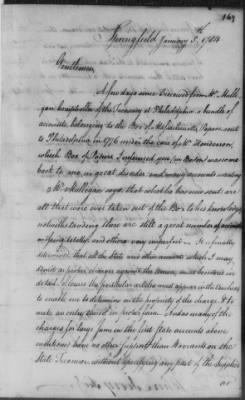 169
Springfield January 5th 1784
Gentlemen
A few days since I received from Mr. Mulli-
gan late of the Treasury at Philadelphia a bundle of
accounts belonging to the Box of Massachusetts Papers sent
to Philadelphia in 1776 under the care of Mr. Henderson,
which Box of Papers I informed you (in Boston) was come
back to me in great disorder and many accounts wanting
Mr. Mulligan says, that which he has now sent are
all that were ever taken out of the Box to his knowledge,
notwithstanding there are still a great number of accounts
missing and others very imperfect — It is finally
determined that all the State and other accounts which I may
admit as proper charges against the Union, must be stated in
detail, & I suppose the particular articles must appear in the vouchers
to enable me to determine on the propriety of the charge & to
make an entry in proper form. And as many of the
charges for large sums in the first State accounts above
mentioned have no other support than Warrants on the
State Treasurer without specifying any part of the Supplies
or